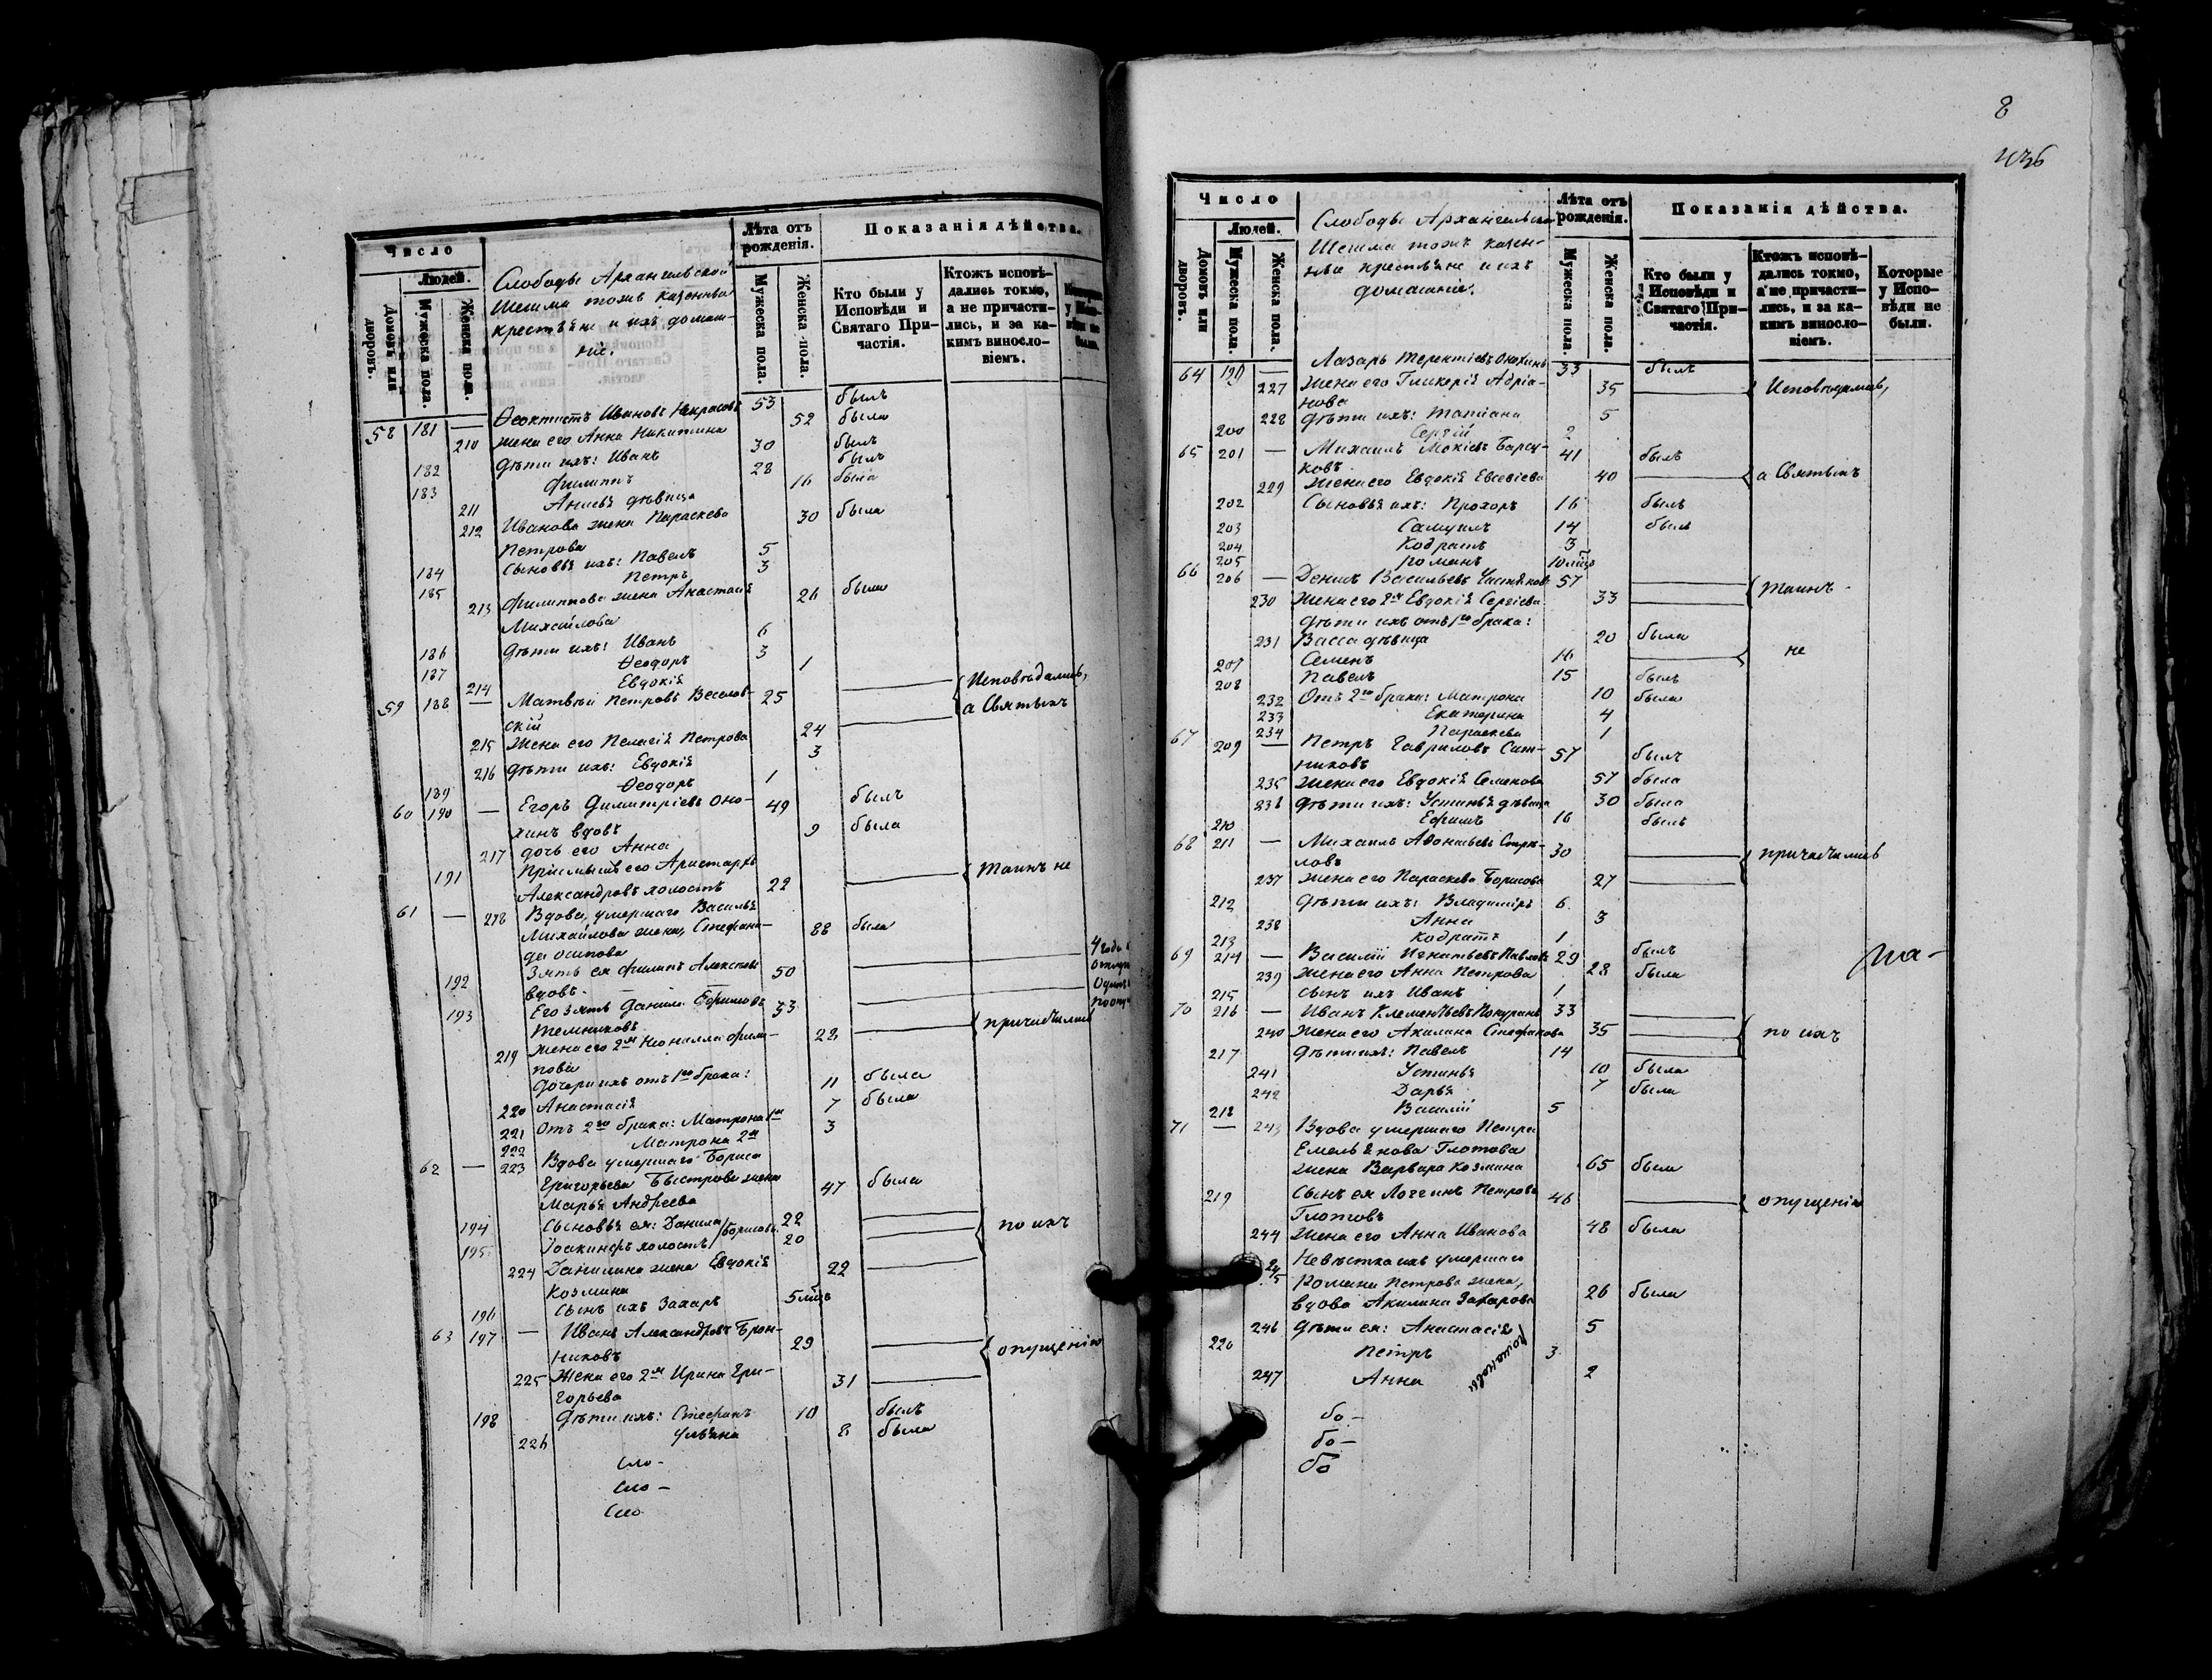 Число
Людей.
Домовъ или дворовъ.
Мужеска пола.
Женска пола.
Слободы Архангельской
Шешма тожъ казенные
крестьяне и ихъ домаш-
ніе.
Лѣта отъ рожденія.
Мужеска пола.
Женска пола.
Показанія дѣйства.
Кто были у Исповѣди и Святаго При-частія.
Ктожъ исповѣ-дались токмо, а не причасти-лись, и за ка-кимъ виносло-віемъ.
58 181 — Ѳеоктистъ Ивановъ Некрасовъ 53 былъ
210 жена его Анна Никитина 52 была
182 Дѣти ихъ: Иванъ 30 былъ
183 Филиппъ 28 былъ
211 Анисья дѣвица 16 была
212 Иванова жена Параскева 30 была
Петрова
184 Сыновья ихъ: Павелъ 5
185 Петръ 3
213 Филиппова жена Анастасія 26 была
Михайлова
186 Дѣти ихъ: Иванъ 6
187 Ѳеодоръ 3
214 Евдокія 1
59 188 — Матвѣй Петровъ Веселов- 25 Исповѣдались,
скій а Святыхъ
215 жена его Пелагія Петрова 24
216 Дѣти ихъ: Евдокія 3
189 Ѳеодоръ 1
60 190 — Егоръ Димитріевъ Оно- 49 былъ
хинъ вдовъ
217 дочь его Анна 9 была
191 Пріемышъ его Аристархъ
Александровъ холостъ 22 Таинъ не
61 — 218 Вдова, умершаго Василья
Михайлова жена, Стефани- 88 была
да Осипова
192 Зять ея Филипъ Алексѣевъ 50
вдовъ.
193 Его зять Данила Ефимовъ 33
Темниковъ
219 жена его 2я Неонилла Фили- 22 причастились
пова
Дочери ихъ отъ 1го брака:
220 Анастасія 11 была
221 Отъ 2го брака: Матрона 1я 7 была
222 Матрона 2я 3
62 — 223 Вдова умершаго Бориса
Григорьева Быстрова жена 47 была
Марья Андреева
194 Сыновья ея: Данила Борисовы 22 по ихъ
195 Іоакинфъ холостъ 20
224 Данилина жена Евдокія 22
Козмина
196 Сынъ ихъ Захаръ 5 мѣс
63 197 — Иванъ Александровъ Брон- 29 опущенію
никовъ
225 Жена его 2я Ирина Гри- 31
горьева
198 Дѣти ихъ: Стефанъ 10 былъ
226 Ульяна 8 была
Сло-
Сло-
Сло
8
Число
Людей.
Домовъ или дворовъ.
Мужеска пола.
Женска пола.
Слободы Архангельской
Шешма тожъ казен-
ные крестьяне и ихъ
домашніе.
Лѣта отъ рожденія.
Мужеска пола.
Женска пола.
Показанія дѣйства.
Кто были у Исповѣди и Святаго При-частія.
Ктожъ исповѣ-дались токмо, а не причасти-лись, и за ка-кимъ виносло-віемъ.
Которые у Испо-вѣди не были.
64 199 — Лазарь Терентіевъ Онохинъ 33 былъ
227 Жена его Гликерія Адріа- 35 Исповѣдались,
нова
228 Дѣти ихъ: Татіана 5
200 Сергій 2
65 201 — Михаилъ Мокіевъ Барсу- 41 былъ
ковъ
229 Жена его Евдокія Евсевіева 40 а Святыхъ
202 Сыновья ихъ: Прохоръ 16 былъ
203 Самуилъ 14 былъ
204 Кодратъ 3
205 Романъ 10 мѣс
66 206 — Денисъ Васильевъ Чистяковъ 57 Таинъ
230 Жена его 2я Евдокія Сергіева 33
Дѣти ихъ отъ 1го брака:
231 Васса дѣвица 20 была
207 Семенъ 16 не
208 Павелъ 15 былъ
232 Отъ 2го брака: Матрона 10 была
233 Екатерина 4
234 Параскева 1
67 209 — Петръ Гавриловъ Сит- 57 былъ
никовъ
235 Жена его Евдокія Семенова 57 была
236 Дѣти ихъ: Устинья дѣвица 30 была
210 Ефимъ 16 былъ
68 211 — Михаилъ Аѳонасьевъ Стрѣ- 30 причастились
ловъ
237 Жена его Параскева Борисова 27
212 Дѣти ихъ: Владиміръ 6
238 Анна 3
213 Кодратъ 1
69 214 — Василій Игнатьевъ Павловъ 29 былъ
239 Жена его Анна Петрова 28 была
215 Сынъ ихъ Иванъ 1
70 216 — Иванъ Клементьевъ 33
240 Жена его Акилина Стефанова 35 по ихъ
217 Дѣти ихъ: Павелъ 14
241 Устинья 10 была
242 Дарья 7 была
218 Василій 5
71 — 243 Вдова умершаго Петра
Емельянова Глотова
жена Варвара Козмина 65 была
219 Сынъ ея Логгинъ Петровъ 46 опущенію
Глотовъ
244 Жена его Анна Иванова 48 была
245 Невѣстка ихъ умершаго
Романа Петрова жена,
вдова Акилина Захарова 26 была
246 Дѣти ея: Анастасія 5
220 Петръ 3
Романовы
247 Анна 2
бо-
бо-
бо